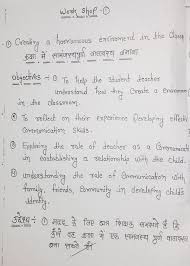 Work Shop - ①
① Creating a harmonious enviroment in the Class
कक्षा में सामंजस्यपूर्ण वातावरण बनाना
Objectives :- ① To help the student teacher
understand how they Create a enviroment
in the classroom.
② To reflect on their experience Developing effective
Communication Skills.
③ Exploring the role of teacher as a Communicator
in eastablishing a relationship with the Child.
④ understanding the role of Communication with
family, friends, Community in developing child's
identity.
उद्देश्य :- ①
कक्षा में एक सामंजस्यपूर्ण वातावरण